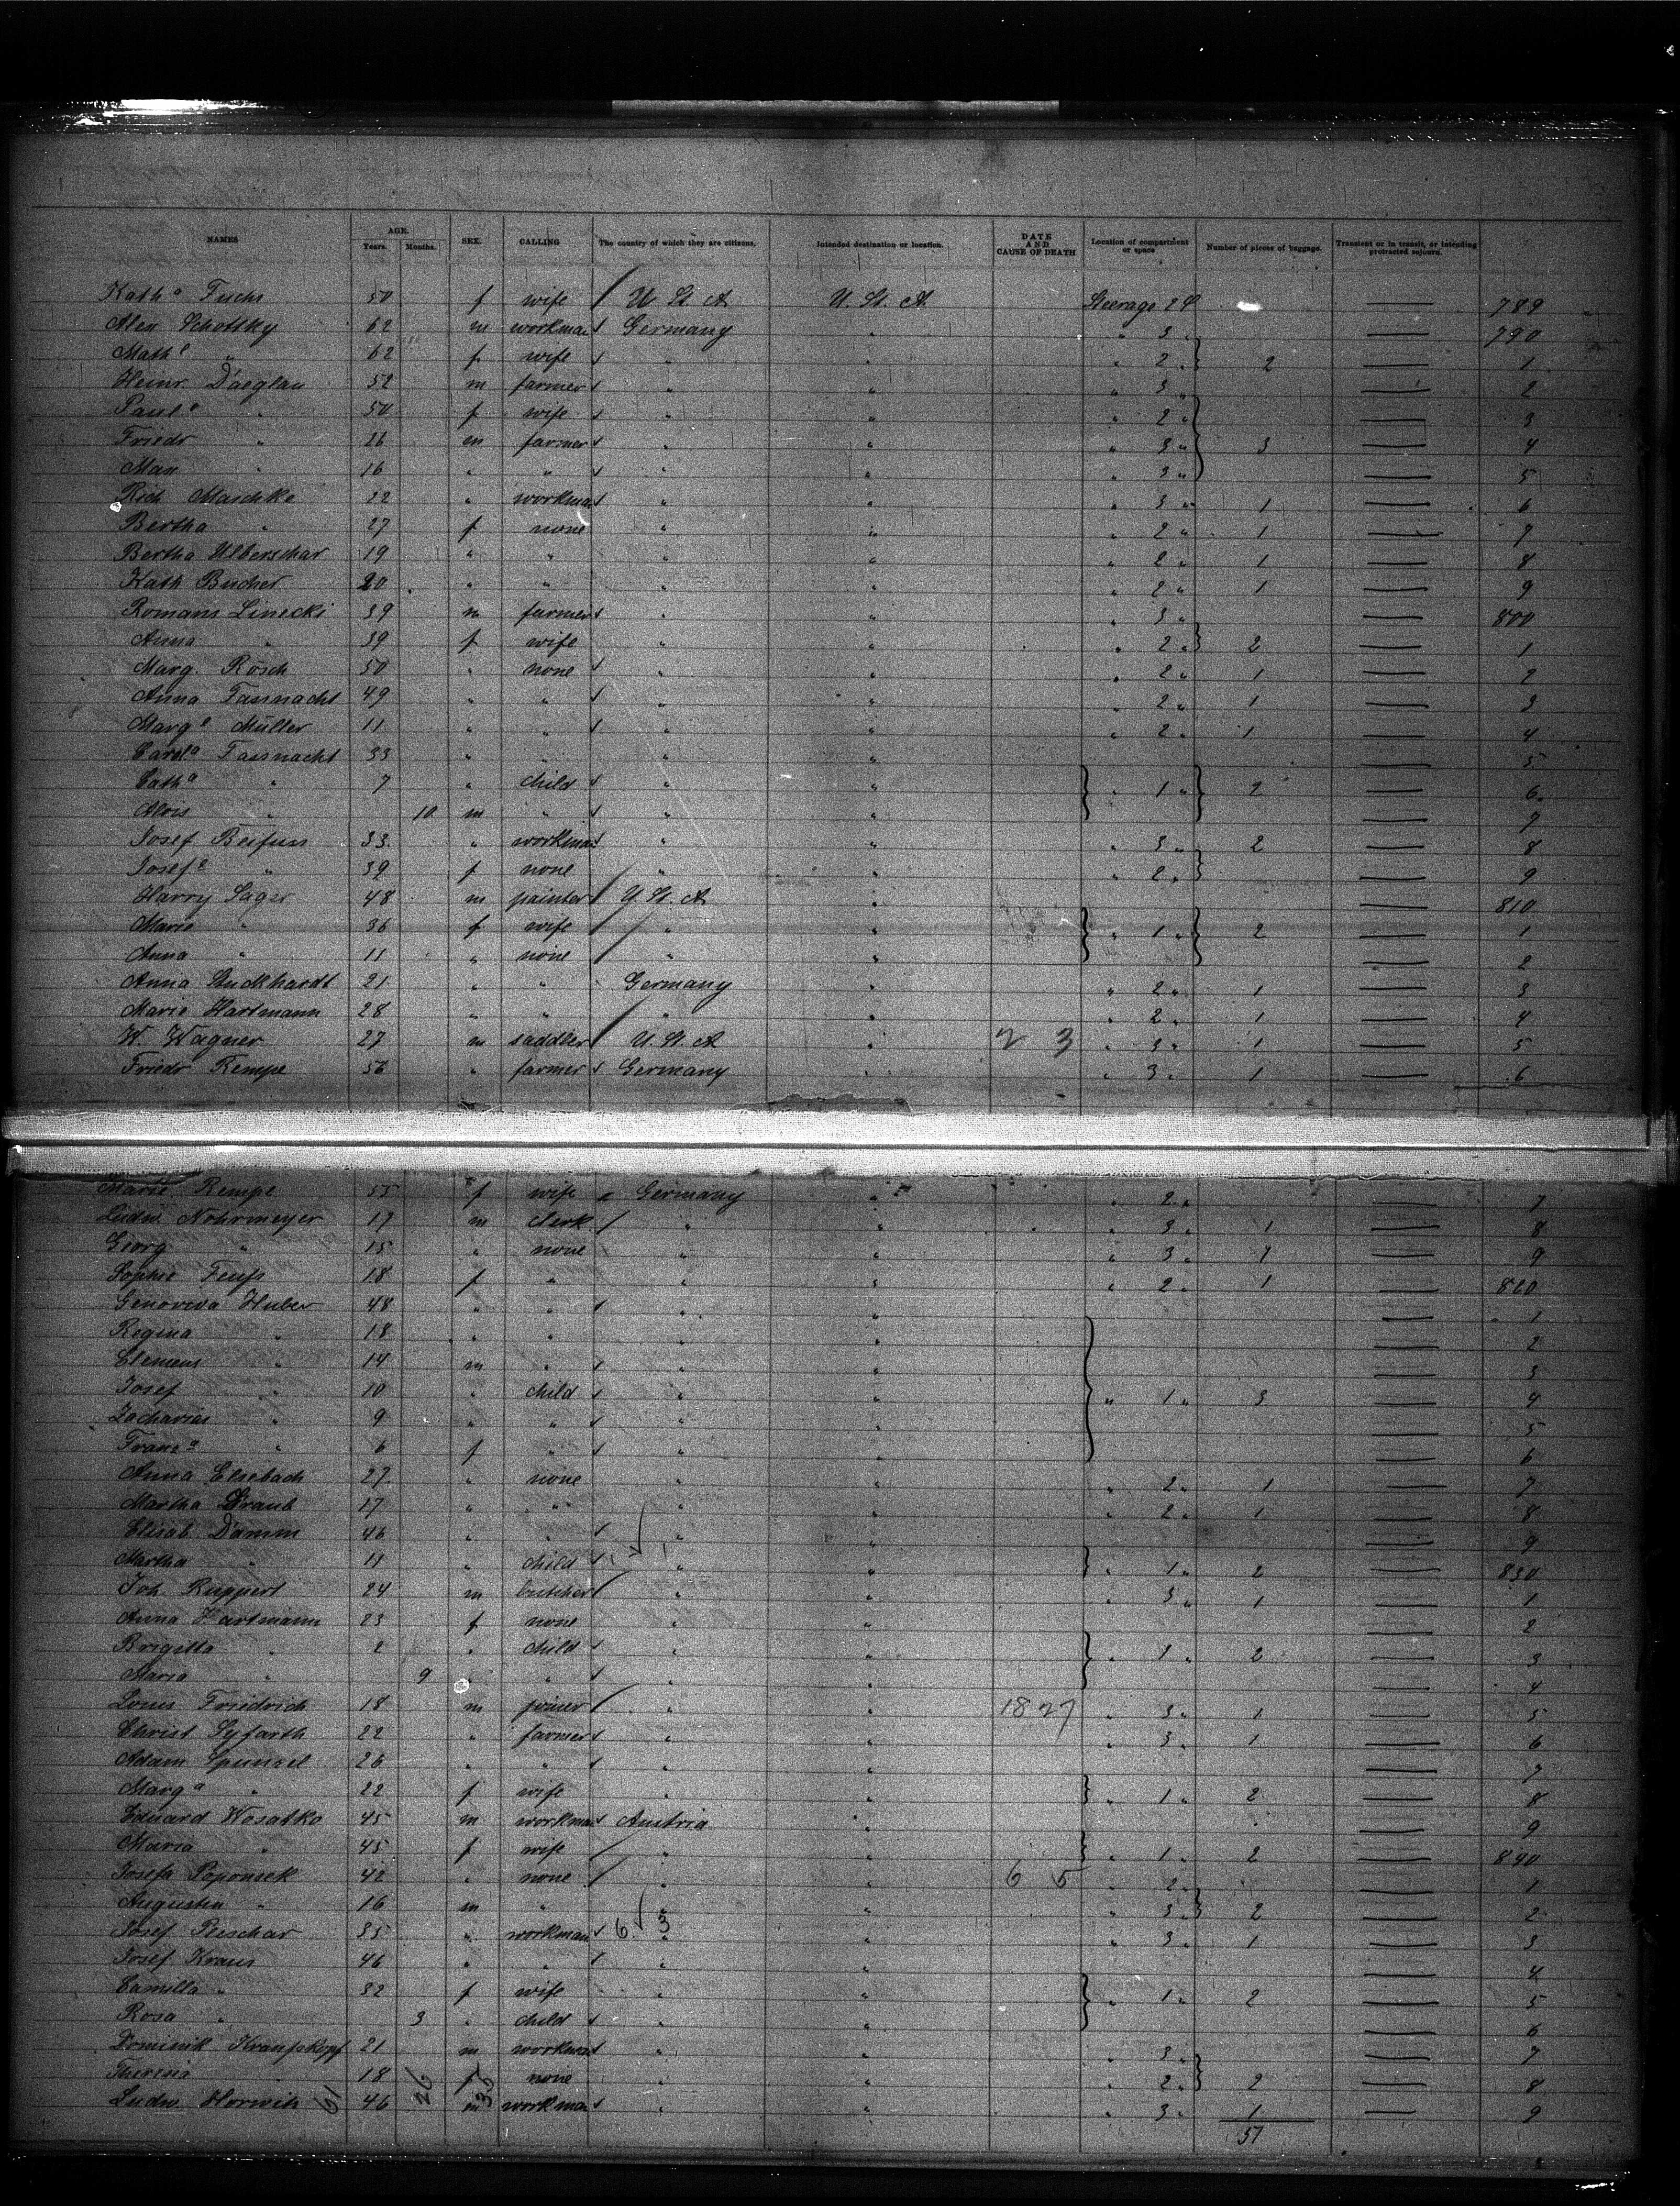 NAMES AGE. Years. Months. SEX. CALLING The country of which they are citizens. Intended destination or location. DATE AND CAUSE OF DEATH Location of compartment or space Number of pieces of baggage. Transient or in transit, or intending protracted sojourn.
Kath a Fuchs 50 f wife U. St. A. U. St. A. Steerage 2 — 789
Alex Schottky 62 m workman Germany " " 3 " — 790
Math e " 62 f wife " " " 2 " 2 — 1
Heinr. Daeglau 52 m farmer " " " 3 " — 2
Paul e " 50 f wife " " " 2 " — 3
Friedr " 26 m farmer " " " 3 " 3 — 4
Max " 16 " " " " " 3 " — 5
Rich Maschke 22 " workman " " " 3 " 1 — 6
Bertha " 27 f none " " " 2 " 1 — 7
Bertha Ulberschar 19 " " " " " 2 " 1 — 8
Kath Bucher 20 " " " " " 2 " 1 — 9
Romans Linecki 39 m farmer " " " 3 " — 800
Anna " 39 f wife " " " 2 " 2 — 1
Marg. Rösch 50 " none " " " 2 " 1 — 2
Anna Fassnacht 49 " " " " " 2 " 1 — 3
Marg e Müller 11 " " " " " 2 " 1 — 4
Carol a Fassnacht 33 " " " " — 5
Cath a " 7 " child " " " 1 " 2 — 6
Alois " 10 m " " " — 7
Josef Beifuss 33 " workman " " " 3 " 2 — 8
Josef e " 39 f none " " " 2 " — 9
Harry Sager 48 m painter U. St. A " — 810
Marie " 36 f wife " " " 1 " 2 — 1
Anna " 11 " none " " — 2
Anna Stuckhardt 21 " " Germany " " 2 " 1 — 3
Marie Hartmann 28 " " " " " 2 " 1 — 4
W. Wagner 27 m saddler U. St. A " 2 3 " 3 " 1 — 5
Friedr Rempe 56 " farmer Germany " " 3 " 1 — 6
Marie Rempe 55 f wife Germany " " 2 " 7
Ludw. Nohrmeyer 17 m clerk " " " 3 " 1 — 8
Georg " 15 " none " " " 3 " 1 — 9
Sophie 18 f " " " " 2 " 1 — 820
Genoveva Huber 48 " " " " — 1
Regina " 18 " " " " — 2
Clemens " 14 m " " " — 3
Josef " 10 " child " " " 1 " 3 — 4
Zacharias " 9 " " " " — 5
Franz a " 6 f " " " — 6
Anna Elsebach 27 " none " " " 2 " 1 — 7
Martha Straub 17 " " " " " 2 " 1 — 8
Elisab. Damm 46 " " " " — 9
Martha " 11 " child " " " 1 " 2 — 830
Joh. Ruppert 24 m butcher " " " 3 " 1 — 1
Anna Hartmann 23 f none " " — 2
Brigitta " 2 " child " " " 1 " 2 — 3
Maria " 9 " " " " — 4
Louis Friedrich 18 m joiner " " 18 27 " 3 " 1 — 5
Christ Syfarth 22 " farmer " " " 3 " 1 — 6
Adam Spunzel 26 " " " " — 7
Marg a " 22 f wife " " " 1 " 2 — 8
Eduard Wosatko 45 m workman Austria " — 9
Maria " 45 f wife " " " 1 " 2 — 840
Josefa Poponsek 42 " none " " 6 5 " 2 " — 1
Augustin " 16 m " " " " 3 " 2 — 2
Josef Peschar 35 " workman 6 3 " " " 3 " 1 — 3
Josef Kraus 46 " " " " — 4
Camilla " 32 f wife " " " 1 " 2 — 5
Rosa " 3 " child " " — 6
Dominik 21 m workman " " " 3 " — 7
Theresia " 18 f none " " " 2 " 2 — 8
Ludw. Horwith 46 m workman " " " 3 " 1 — 9
61 26 35 57